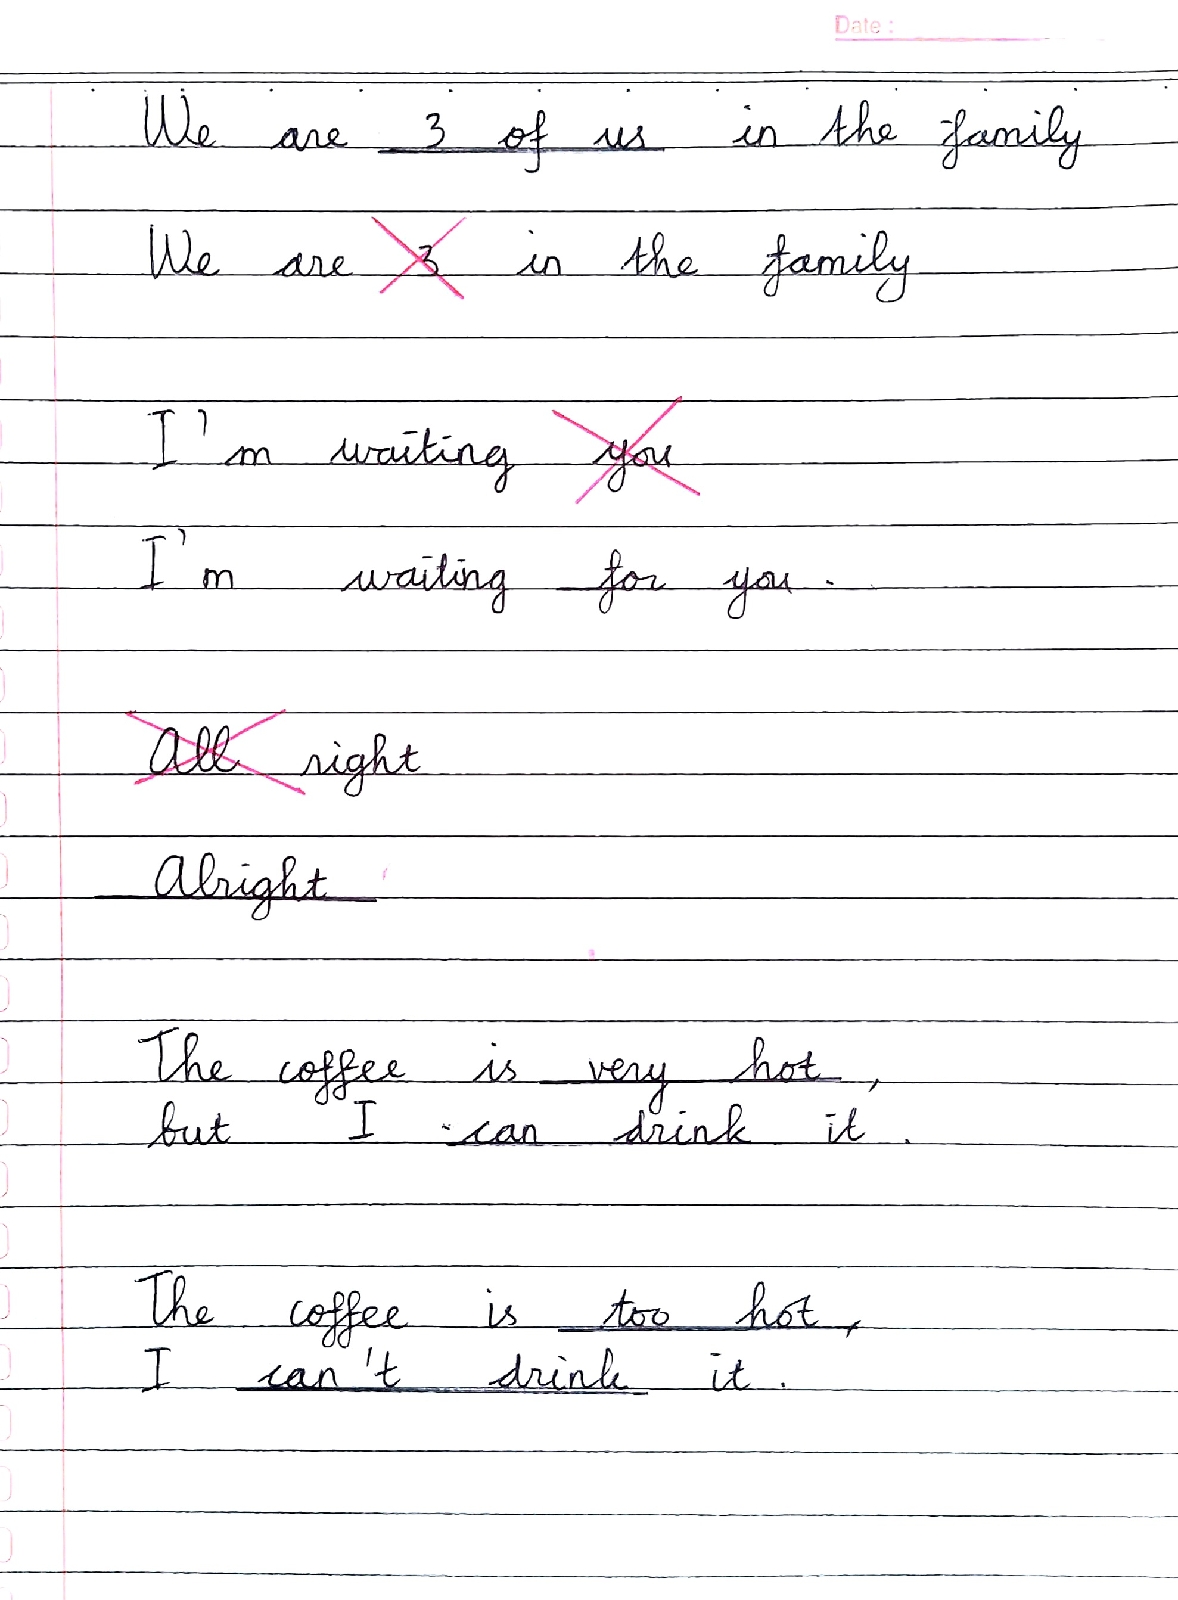 Date :
We are 3 of us in the family
We are 3 in the family
I'm waiting you
I'm waiting for you.
All right
Alright
The coffee is very hot,
but I can drink it.
The coffee is too hot,
I can't drink it.